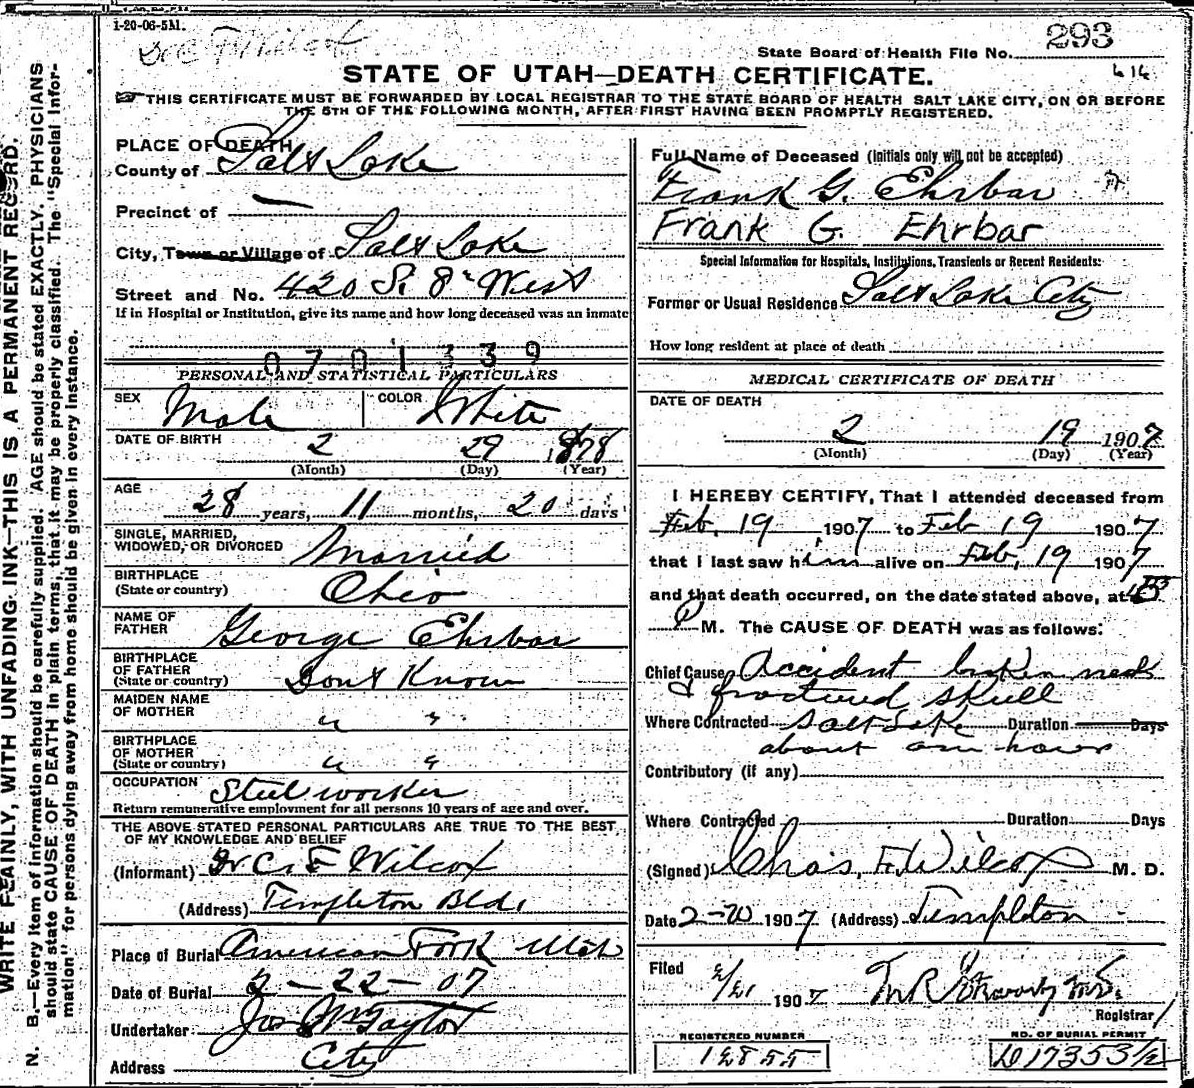 1-20-06-5M.
Dr C F Wilcox
State Board of Health File No. 293
STATE OF UTAH—DEATH CERTIFICATE.
614
THIS CERTIFICATE MUST BE FORWARDED BY LOCAL REGISTRAR TO THE STATE BOARD OF HEALTH SALT LAKE CITY, ON OR BEFORE
THE 5TH OF THE FOLLOWING MONTH, AFTER FIRST HAVING BEEN PROMPTLY REGISTERED.
WRITE PLAINLY, WITH UNFADING INK—THIS IS A PERMANENT RECORD.
N. B.—Every item of Information should be carefully supplied. AGE should be stated EXACTLY. PHYSICIANS
should state CAUSE OF DEATH in plain terms, that it may be properly classified. The "Special Infor-
mation" for persons dying away from home should be given in every instance.
PLACE OF DEATH
County of Salt Lake
Precinct of —
City, Town or Village of Salt Lake
Street and No. 420 S. 8th West
If in Hospital or Institution, give its name and how long deceased was an inmate
0701339
PERSONAL AND STATISTICAL PARTICULARS
SEX Male COLOR White
DATE OF BIRTH 2 29 1878
(Month) (Day) (Year)
AGE 28 years, 11 months, 20 days
SINGLE, MARRIED,
WIDOWED, OR DIVORCED Married
BIRTHPLACE
(State or country) Ohio
NAME OF
FATHER George Ehrbar
BIRTHPLACE
OF FATHER
(State or country) Dont Know
MAIDEN NAME
OF MOTHER " "
BIRTHPLACE
OF MOTHER
(State or country) " "
OCCUPATION Steel worker
Return remunerative employment for all persons 10 years of age and over.
THE ABOVE STATED PERSONAL PARTICULARS ARE TRUE TO THE BEST
OF MY KNOWLEDGE AND BELIEF
(Informant) Dr C. F Wilcox
(Address) Templeton Bld.
Place of Burial American Fork Utah
Date of Burial 2-22-07
Undertaker Jos Wm Taylor
Address City
Full Name of Deceased (Initials only will not be accepted)
Frank G. Ehrbar
Frank G. Ehrbar
Special Information for Hospitals, Institutions, Transients or Recent Residents:
Former or Usual Residence Salt Lake City
How long resident at place of death
MEDICAL CERTIFICATE OF DEATH
DATE OF DEATH
2 19 1907
(Month) (Day) (Year)
I HEREBY CERTIFY, That I attended deceased from
Feb. 19, 1907 to Feb 19 1907
that I last saw him alive on Feb, 19 1907
and that death occurred, on the date stated above, at
P M. The CAUSE OF DEATH was as follows:
Chief Cause Accident broken neck
& fractured skull
Where Contracted Salt Lake Duration Days
about one hour
Contributory (if any)
Where Contracted Duration Days
(Signed) Chas. F. Wilcox M. D.
Date 2-20 1907 (Address) Templeton
Filed 2/21 1907
Registrar
REGISTERED NUMBER
12855
NO. OF BURIAL PERMIT
D17353 1/2